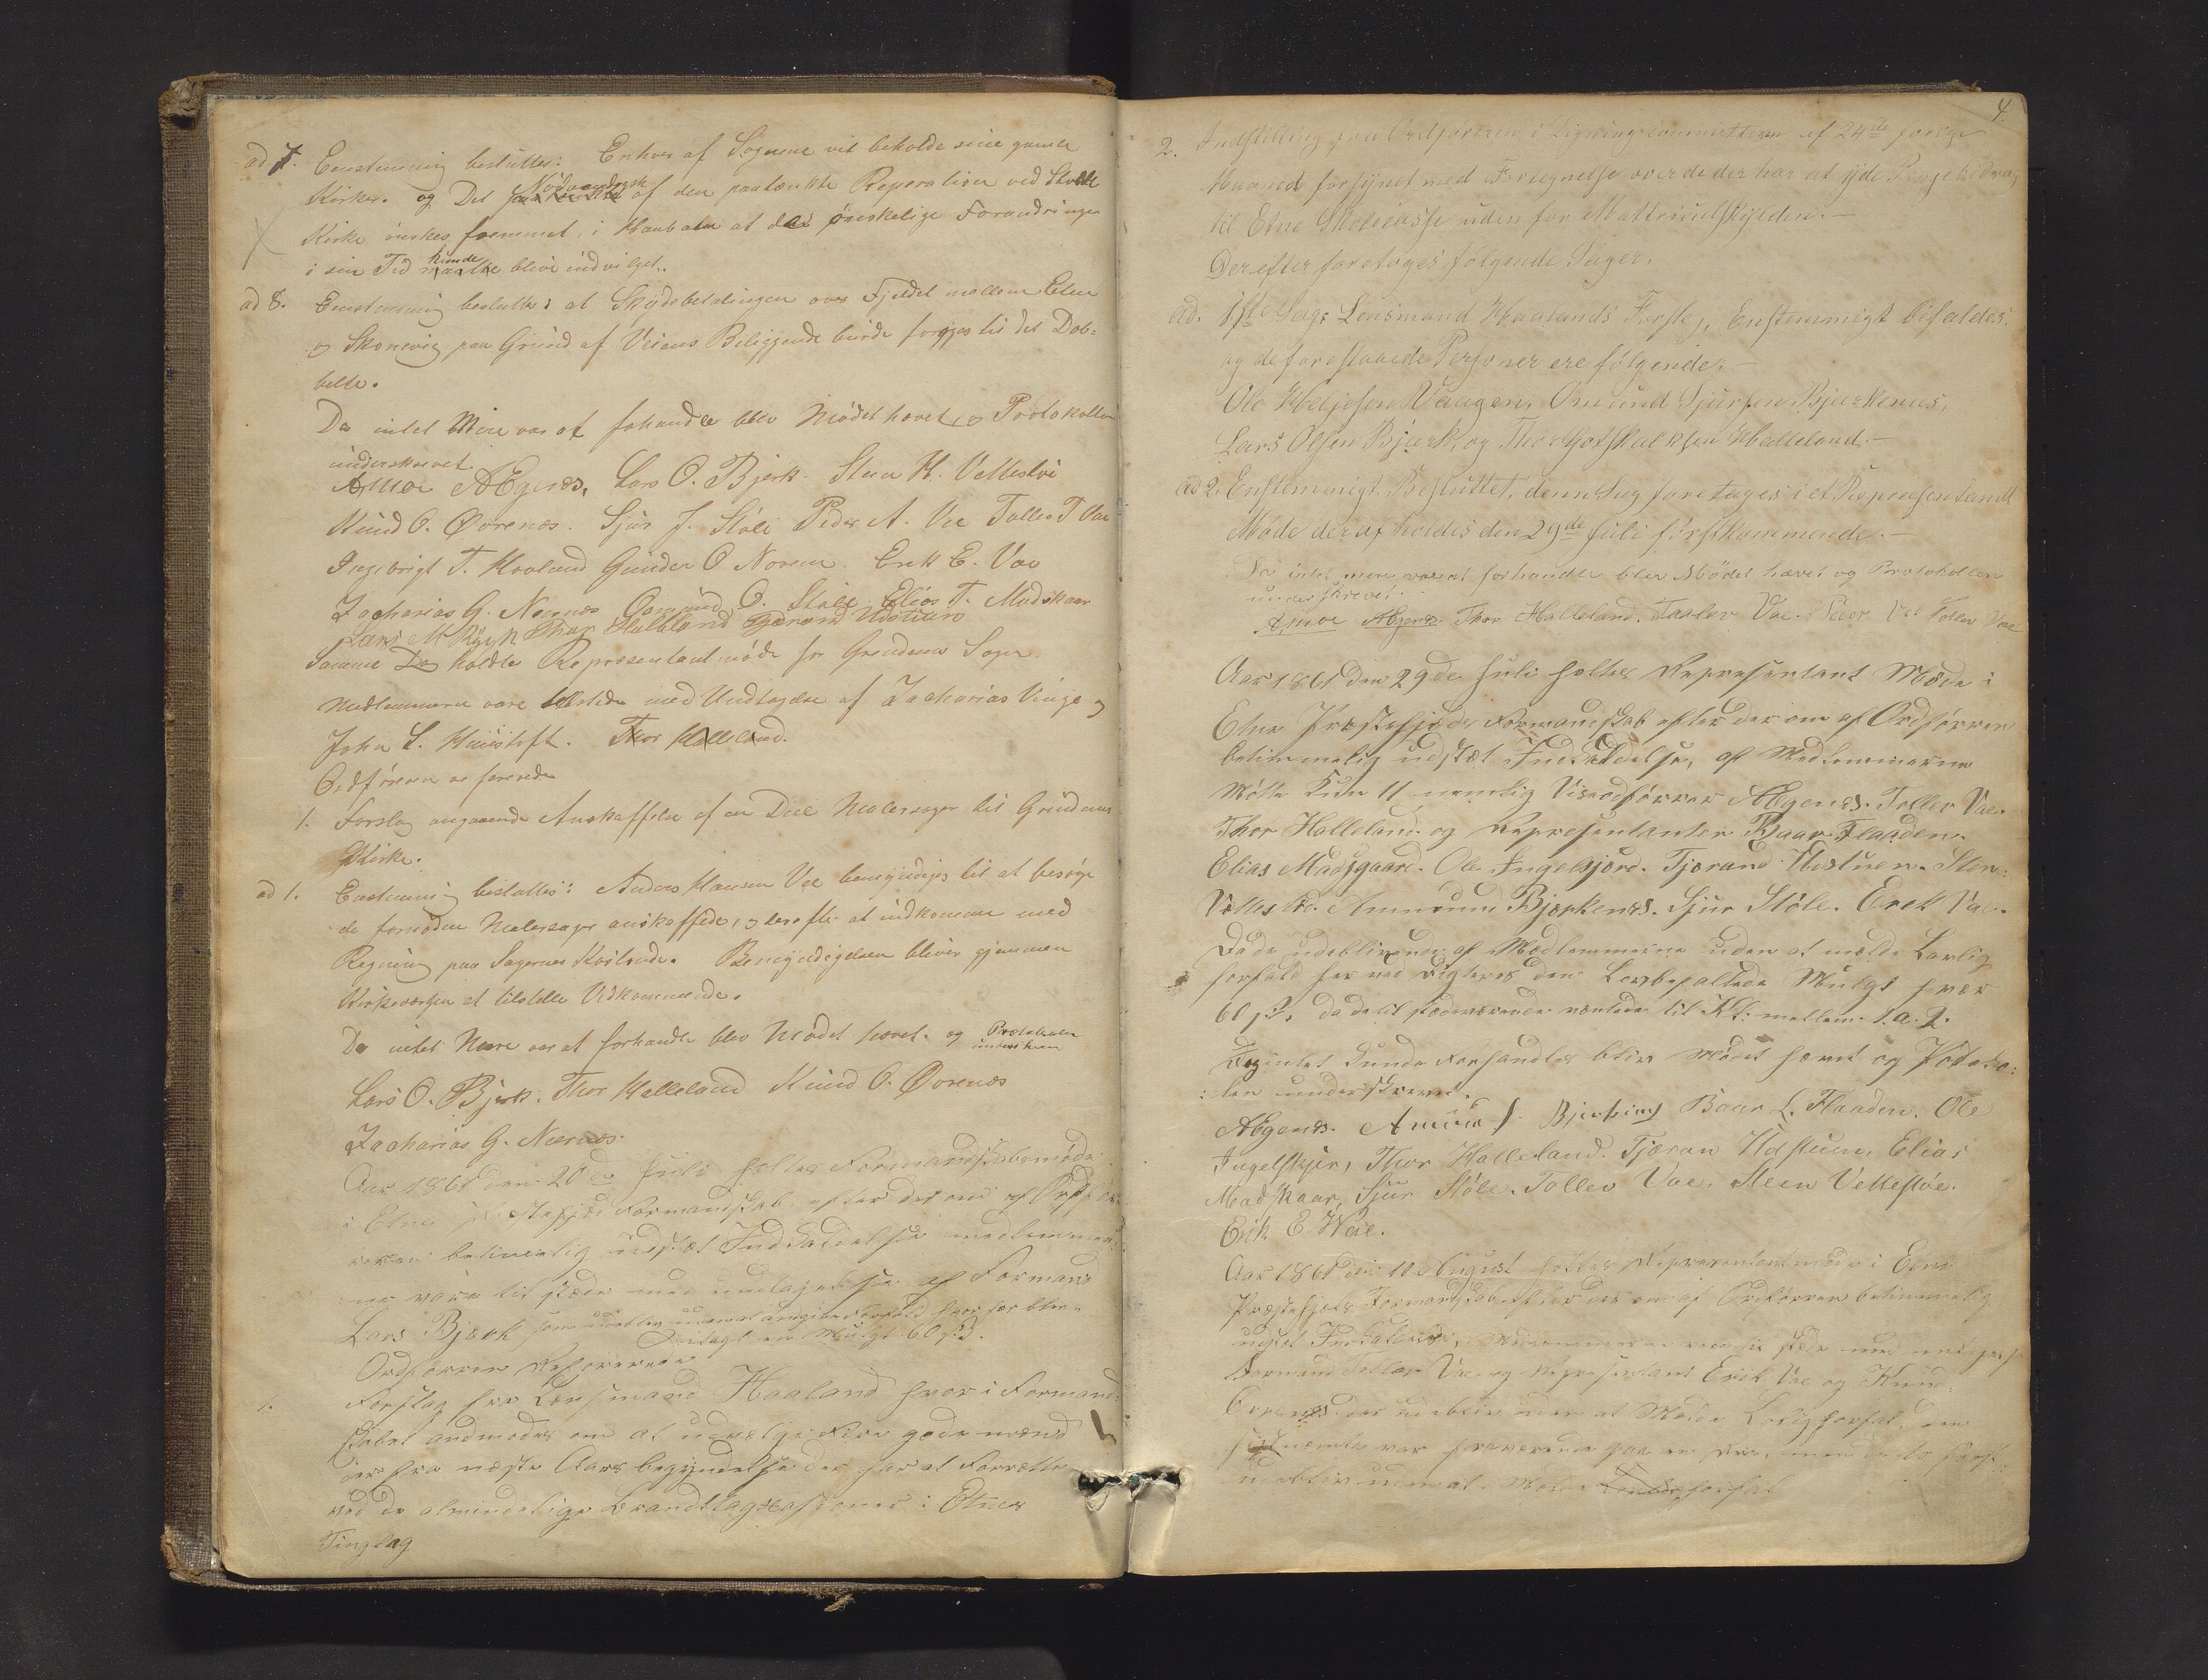 ad 7. Eenstemmig besluttes: Enhver af Sognene vil beholde sine gamle
Kirker. og Det Nødvendigste af den paatænkte Reperation ved Stødle
Kirke ønskes fremmet, i Haab om at de ønskelige Forandringer
i sin Tid kunde blive indvilget.
ad 8. Eenstemmig besluttes: at Skydsbetalingen over Fjeldet mellem Etne
og Skonevig paa Grund af Veiens Beliggende burde forøges til det Dob-
belte.
Da intet Mere var at forhandle blev Mødet hævet og Protokollen
underskrevet.
Amoe AEgenes, Lars O. Bjerk. Steen H. Vettestvi
Knud O. Øvrenes. Sjur J. Støli Peder A. Vee Tollev T Vae
Ingebrigt T. Havland Gunder O Norem. Erik E. Vae
Zacharias G. Nernes Oomund O. Støle. Elias T. Madskaar
Lars M Thor Halleland Tjerand Udstuen
Samme Dag holdte Repræsentantmøde for Grendens Sogn
Medlemmerne vare tilstede med Undtagelse af Zacharias Vinje og
John L. Thor Halleland.
Ordføreren refererede
1. Forslag angaaende Anskaffelse af en Deel Malersager til Grindems
Kirke.
ad 1. Eenstemmig besluttes: Anders Hansen Vee bemyndiges til at besørge
de fornødne Malersager anskaffede, og derefter at indkomme med
Regning paa Sagernes Kostende. Bemyndigelsen bliver gjennem
Kirkeværgen at tilstille Vedkommende.
Da intet Mere var at forhandle blev Mødet hævet og Protokollen
underskreven
Lars O. Bjerk. Thor Halleland Knud O. Øvrenes
Zacharias G. Nernes.
Aar 1861 den 20de Juli holtes Formandskabsmøde
i Etne Præstegjelds Formandskab, efter der om af Ordfør-
reren betimelig udstæt Indkaldelse medlemmer-
ne vare til stæde med undtagelse af Formand
Lars Bjærk som udeblev uden at angive Forfald hvor for blev
ilagt en Mulgt 60 s.
Ordførren Refererede
1. Forslag fra Lænsmand Haaland hvor i Formand-
skabet andmodes om at udvælge Fire gode mænd
fra næste Aars begyndelse der har at Forrette
ved de almindelige Brandttagxasioner i Etnes
Tinglag
4
2. Indstilling fra Ordføreren i Ligningscommitteen af 24de forrige
Maaned forsynet med Fortegnelse over de der har at yde Penge bidrag
til Etne Skolecasse uden for Mattriculskylden.-
Derefter foretoges følgende Sager,
ad. 1ste Sag: Lensmand Haalands Forslg, Enstemmigt bifaldes.
og de foreslaaede Personer ere følgende.-
Ole Heljesen Vaagen, Omund Sjursen Bjerkenes,
Lars Olsen Bjærk, og Thor Gotskalksen Halleland.-
ad 2. Enstemmigt Besluttet, denne Sag foretages i et Repræsentant
Møde der afholdes den 29de Juli førstkommende.-
Da intet mere var at forhandle blev Mødet hævet og Protokollen
underskrevet.
Amoe AEgenes. Thor Halleland. Tollev Vae. Peder Vee Tollev Vae
Aar 1861 den 29de Juli holtes Representant Møde i
Etne Præstegjelds Formandskab efter der om af Ordførren
betimmelig udstæt Indkaldelse, af Medlemmerne
Møtte Kun 11 nemlig Viseordførrer AEgenes. Tollev Vae.
Thor Halleland og Representanter Baar Flaaden.
Elias Madsgaard. Ole Ingelsgjerd. Tjærand Udstuen. Sten
Vettestvo. Ammund Bjærkenes. Sjur Støle. Erek Vae.
De de udeblivende af Medlemmerne uden at mælde Lovlig
forfald her ved Digteres den Lovbefalttede Mulgt hver
60 s, da de til stedeværende væntede til Kl: mellem 1. a. 2.
Da intet Kunde Forhandles blev Mødet hævet og Potoko-
len underskrevet.
AEgenes. Amund S. Bjerkenes Baar L. Flaaden. Ole
Ingelsgjer, Thor Halleland. Tjæran Udstuen, Elias
Madskaar, Sjur Støle. Tollev Vae. Steen Vettestøe.
Erik E. Wae.
Aar 1861 den 10 August holtes Representantmøde i Etne
Præstegjelds Formandskab efter der om af Ordførren betimmelig
udstæt Indkaldelse, Medlemmerne var til stæde med undtagelse
Formand Tollev Vae og Representant Erik Vae og Knud
Øvrenes der udeblev uden at Mælde Lovlig forfal, den
sistnæmte var fraværende paa en men de to først
udeblev uden at Mælde Lovlig forfal